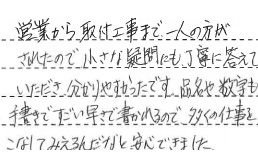 営業から取付工事まで一人の方が
されたので小さな疑問にも丁寧に答えて
いただき分かりやすかったです。品名や数字も
手書きですごい早さで書かれるので多くの仕事を
こなしてみえるんだなと安心できました